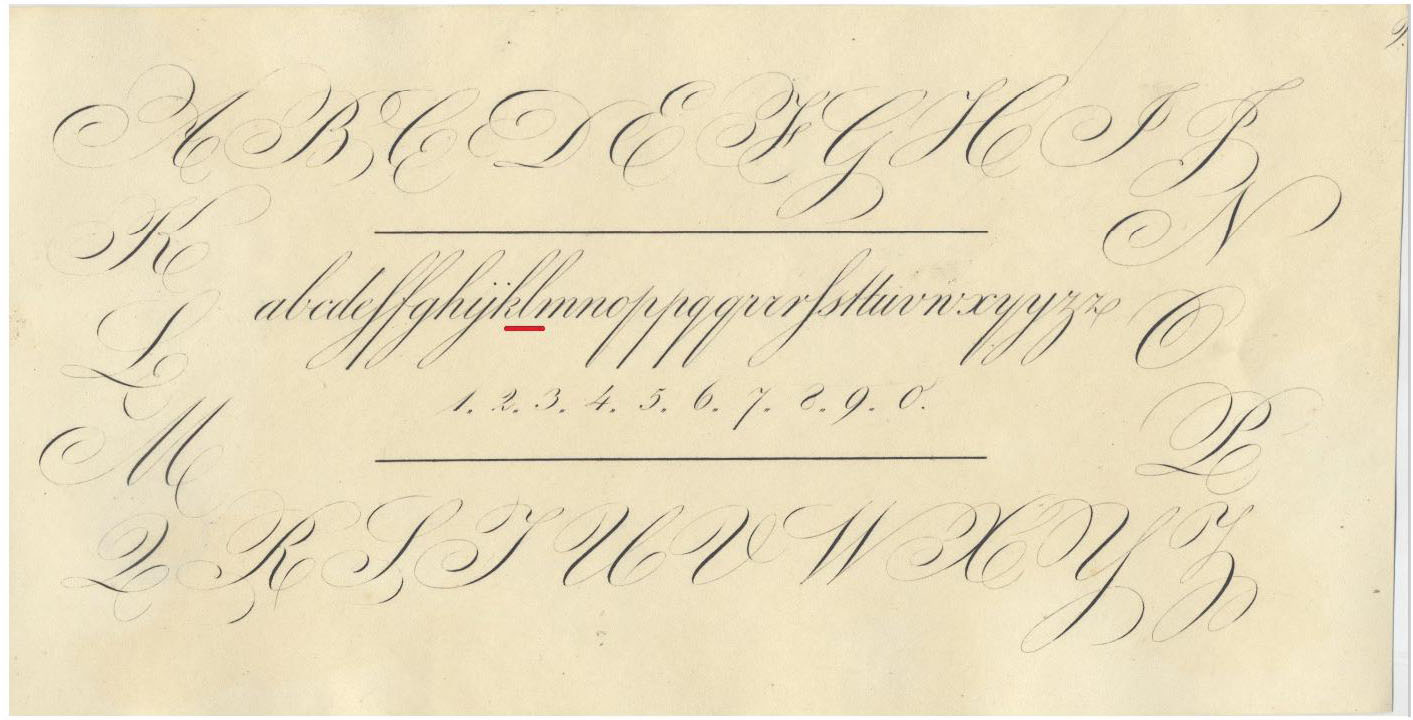 A B C D E F G H I J
K N
abcdeffghijklmnoppqqrrrſsttuvwxyyzz
L O
1. 2. 3. 4. 5. 6. 7. 8. 9. 0.
M P
Q R S T U V W X Y Z